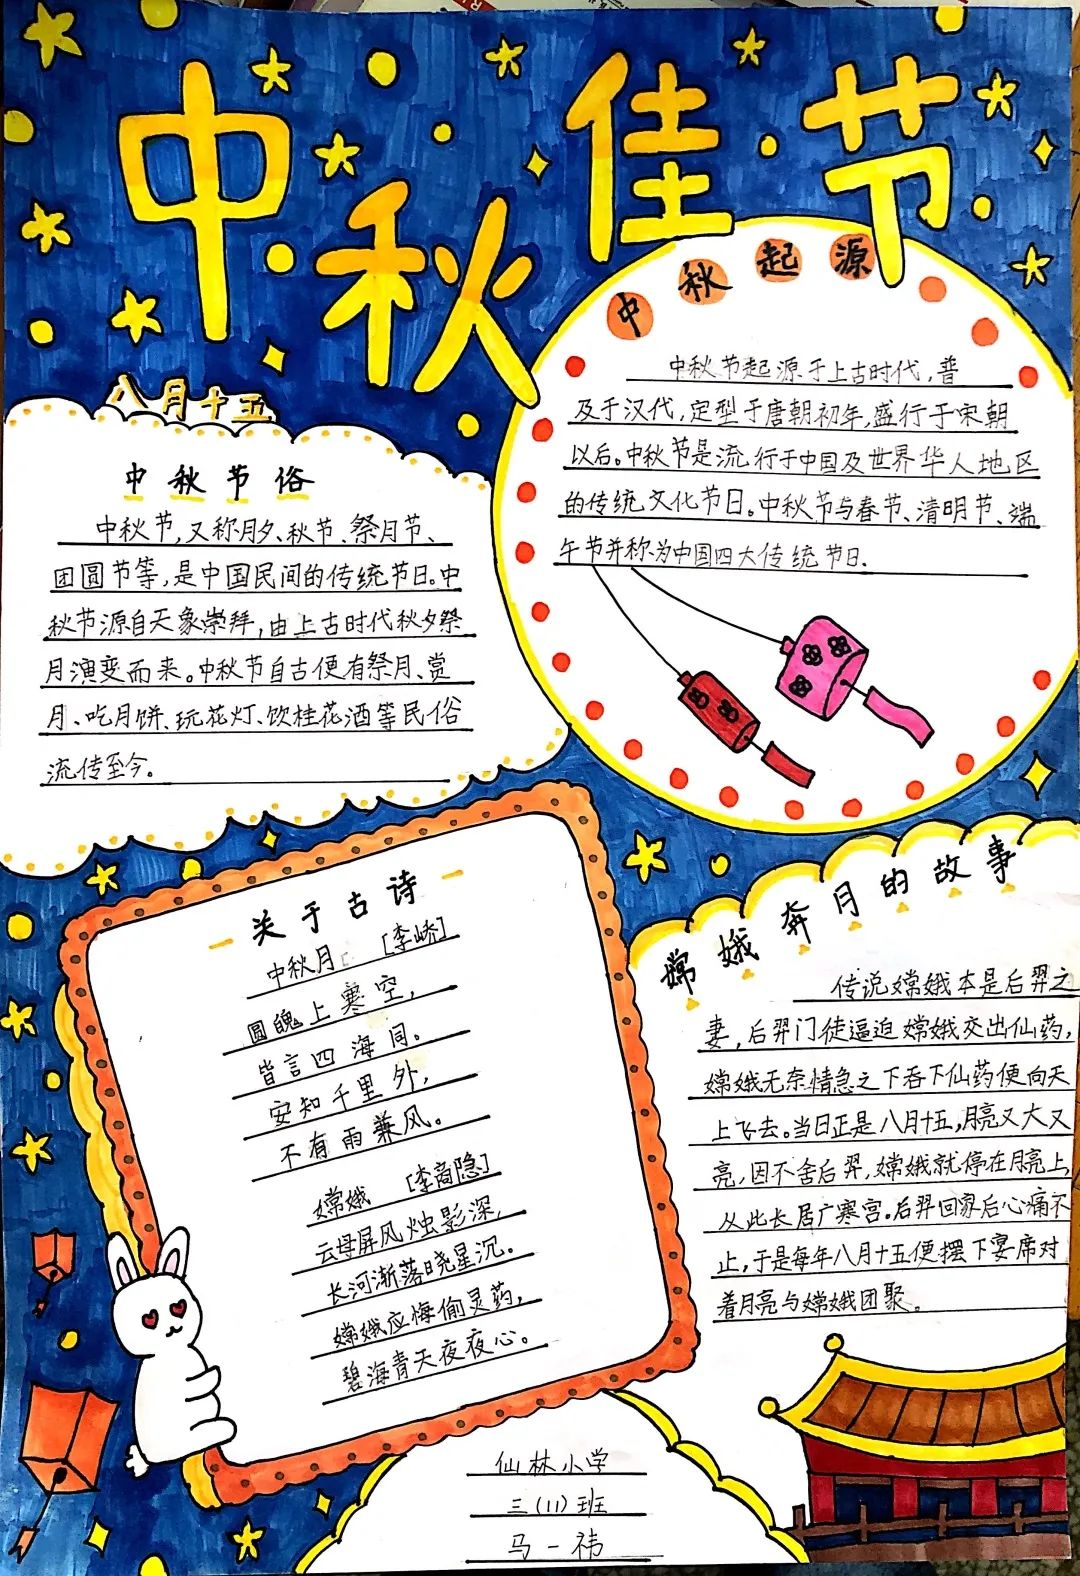 中秋佳节
八月十五
中秋节俗
中秋节,又称月夕、秋节、祭月节、
团圆节等,是中国民间的传统节日。中
秋节源自天象崇拜,由上古时代秋夕祭
月演变而来。中秋节自古便有祭月、赏
月、吃月饼、玩花灯、饮桂花酒等民俗
流传至今。
中秋起源
中秋节起源于上古时代,普
及于汉代,定型于唐朝初年,盛行于宋朝
以后。中秋节是流行于中国及世界华人地区
的传统文化节日。中秋节与春节、清明节、端
午节并称为中国四大传统节日.
关于古诗
中秋月 [李峤]
圆魄上寒空,
皆言四海同。
安知千里外,
不有雨兼风。
嫦娥 [李商隐]
云母屏风烛影深,
长河渐落晓星沉。
嫦娥应悔偷灵药,
碧海青天夜夜心。
嫦娥奔月的故事
传说嫦娥本是后羿之
妻,后羿门徒逼迫嫦娥交出仙药,
嫦娥无奈情急之下吞下仙药便向天
上飞去。当日正是八月十五,月亮又大又
亮,因不舍后羿,嫦娥就停在月亮上,
从此长居广寒宫。后羿回家后心痛不
止,于是每年八月十五便摆下宴席对
着月亮与嫦娥团聚。
仙林小学
三(11)班
马一祎